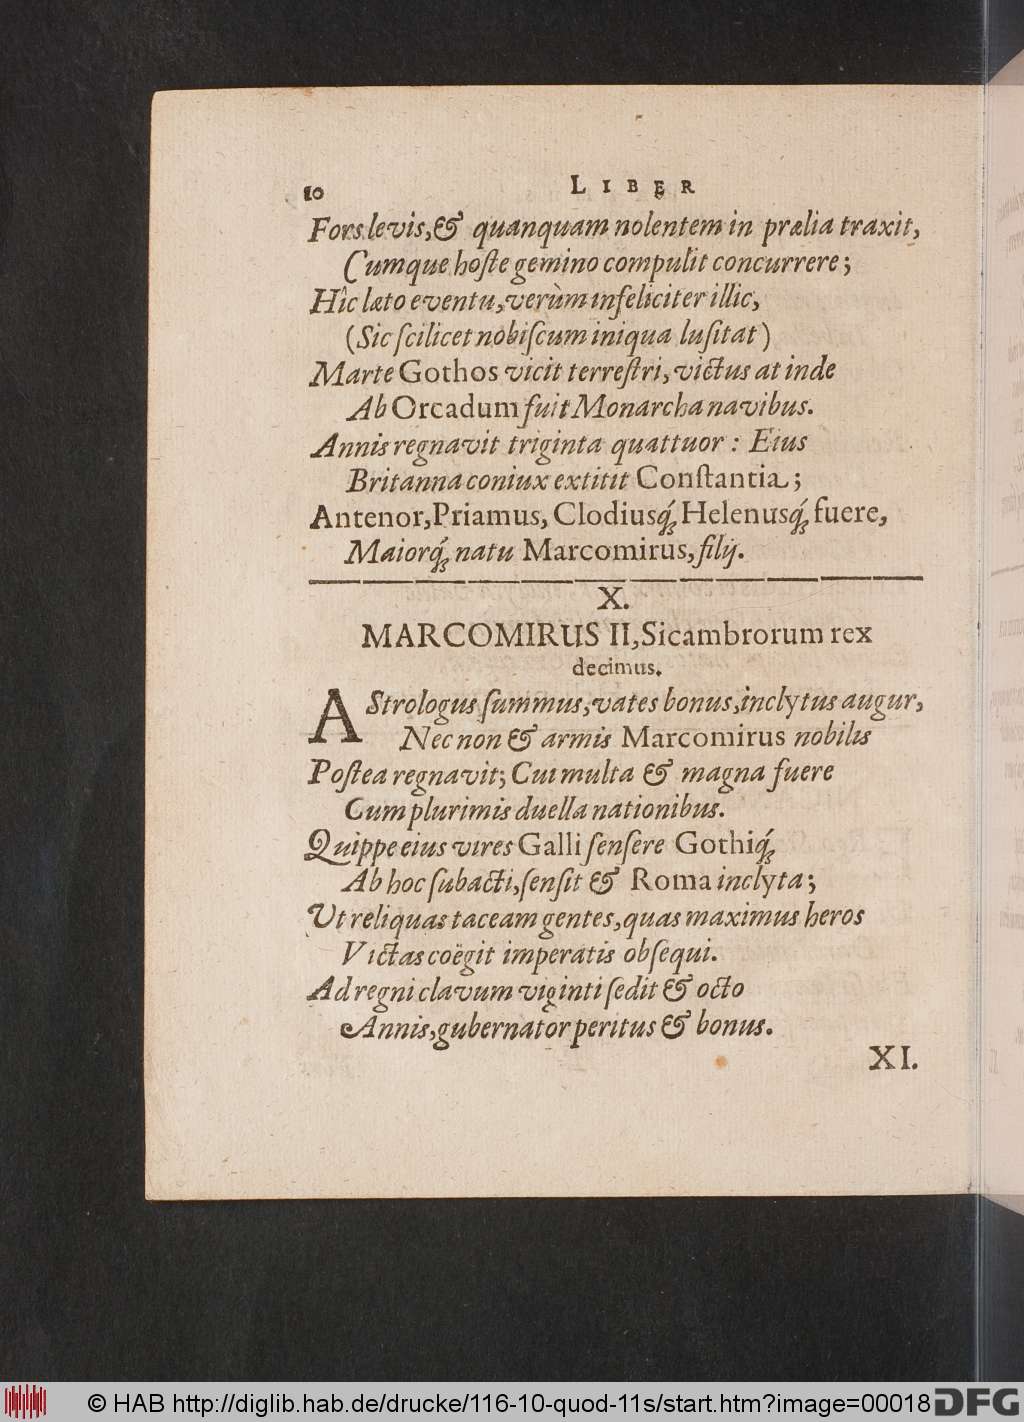 10 LIBER
Fors levis, & quanquam nolentem in prælia traxit,
Cumque hoſte gemino compulit concurrere;
Hîc læto eventu, verùm infeliciter illic,
(Sic ſcilicet nobiſcum iniqua luſitat)
Marte Gothos vicit terreſtri, victus at inde
Ab Orcadum fuit Monarcha navibus.
Annis regnavit triginta quattuor : Eius
Britanna coniux extitit Conſtantia;
Antenor, Priamus, Clodiusq́; Helenusq́; fuere,
Maiorq́; natu Marcomirus, filij.
X.
MARCOMIRUS II, Sicambrorum rex
decimus.
AStrologus ſummus, vates bonus, inclytus augur,
Nec non & armis Marcomirus nobilis
Poſtea regnavit; Cui multa & magna fuere
Cum plurimis duella nationibus.
Quippe eius vires Galli ſenſere Gothiq́;
Ab hoc ſubacti, ſenſit & Roma inclyta;
Ut reliquas taceam gentes, quas maximus heros
Victas coëgit imperatis obſequi.
Ad regni clavum viginti ſedit & octo
Annis, gubernator peritus & bonus.
XI.
© HAB http://diglib.hab.de/drucke/116-10-quod-11s/start.htm?image=00018 DFG